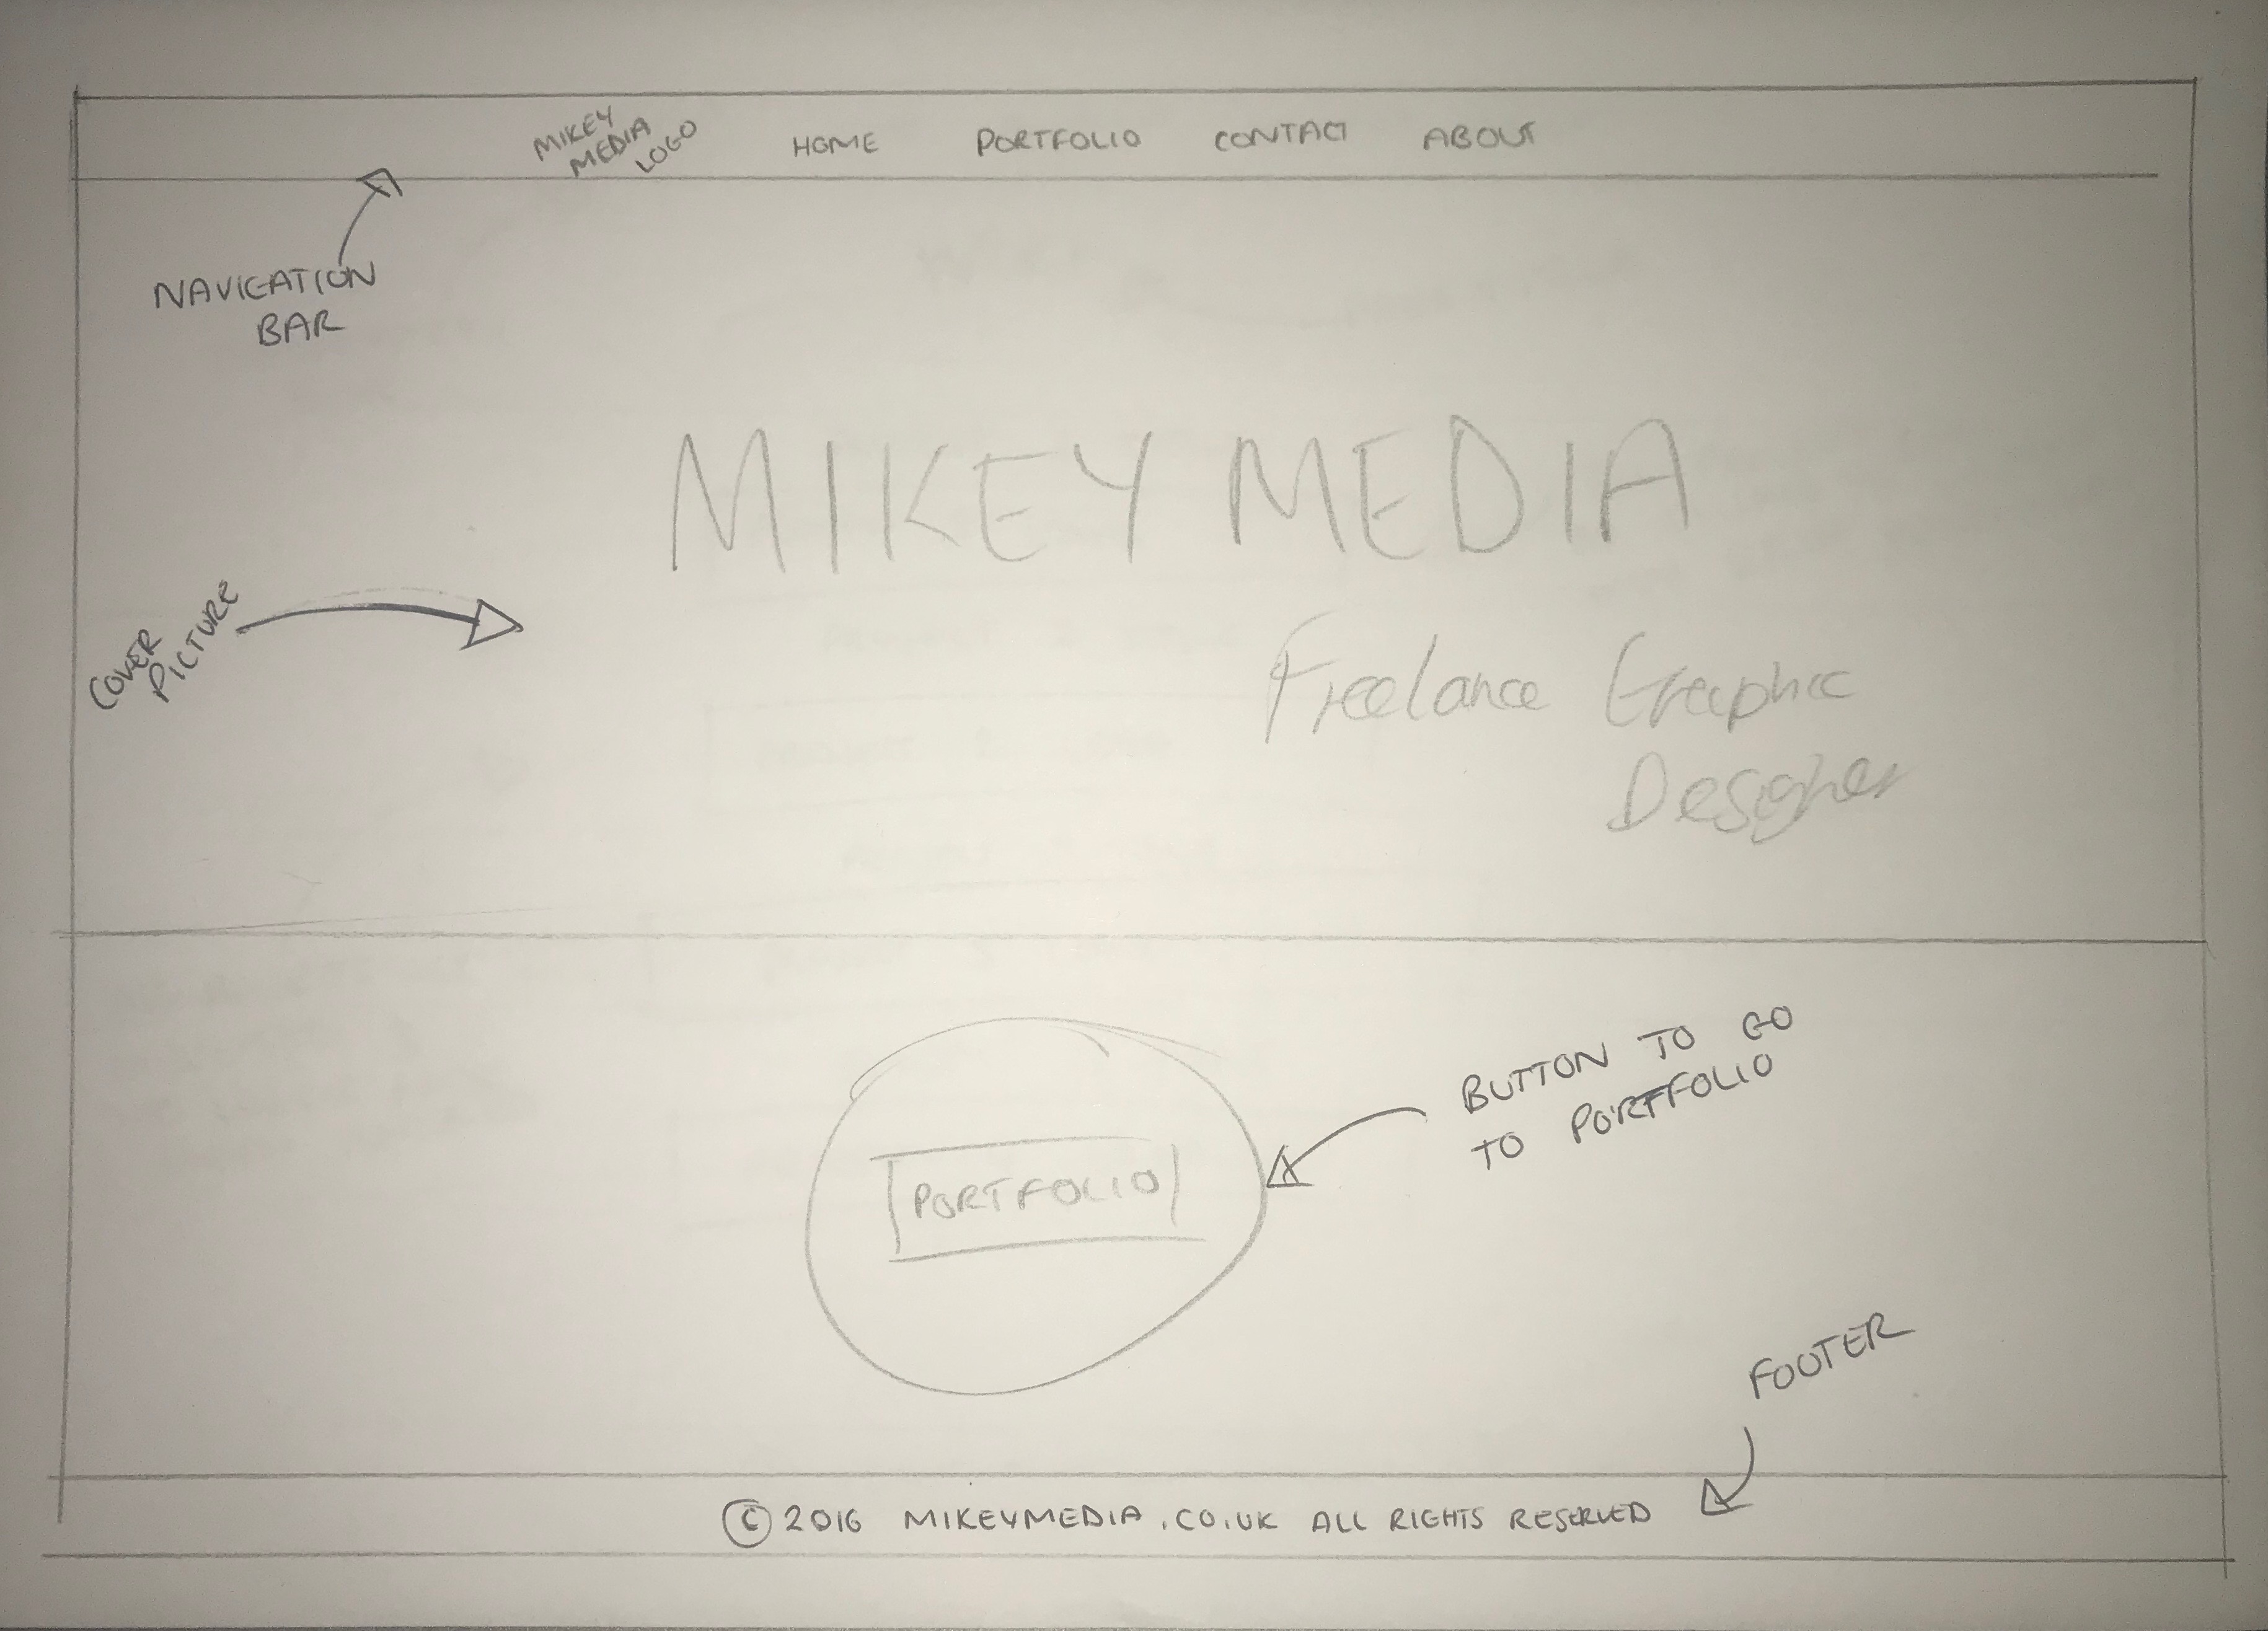 MIKEY
MEDIA
LOGO
HOME PORTFOLIO CONTACT ABOUT
NAVIGATION
BAR
MIKEY MEDIA
COVER
PICTURE
Freelance Graphic
Designer
BUTTON TO GO
TO PORTFOLIO
PORTFOLIO
FOOTER
© 2016 MIKEYMEDIA.CO.UK ALL RIGHTS RESERVED